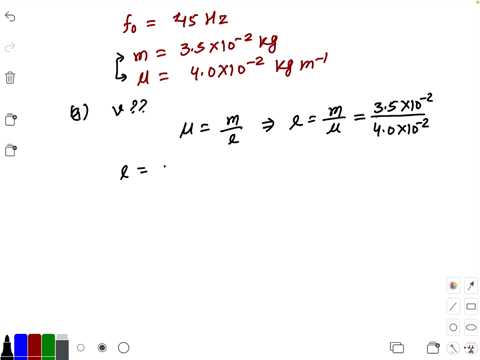 f₀ = 45 Hz
m = 3.5×10⁻² kg
μ = 4.0×10⁻² kg m⁻¹
a) v??
μ = m/l ⇒ l = m/μ = 3.5×10⁻²/4.0×10⁻²
l =